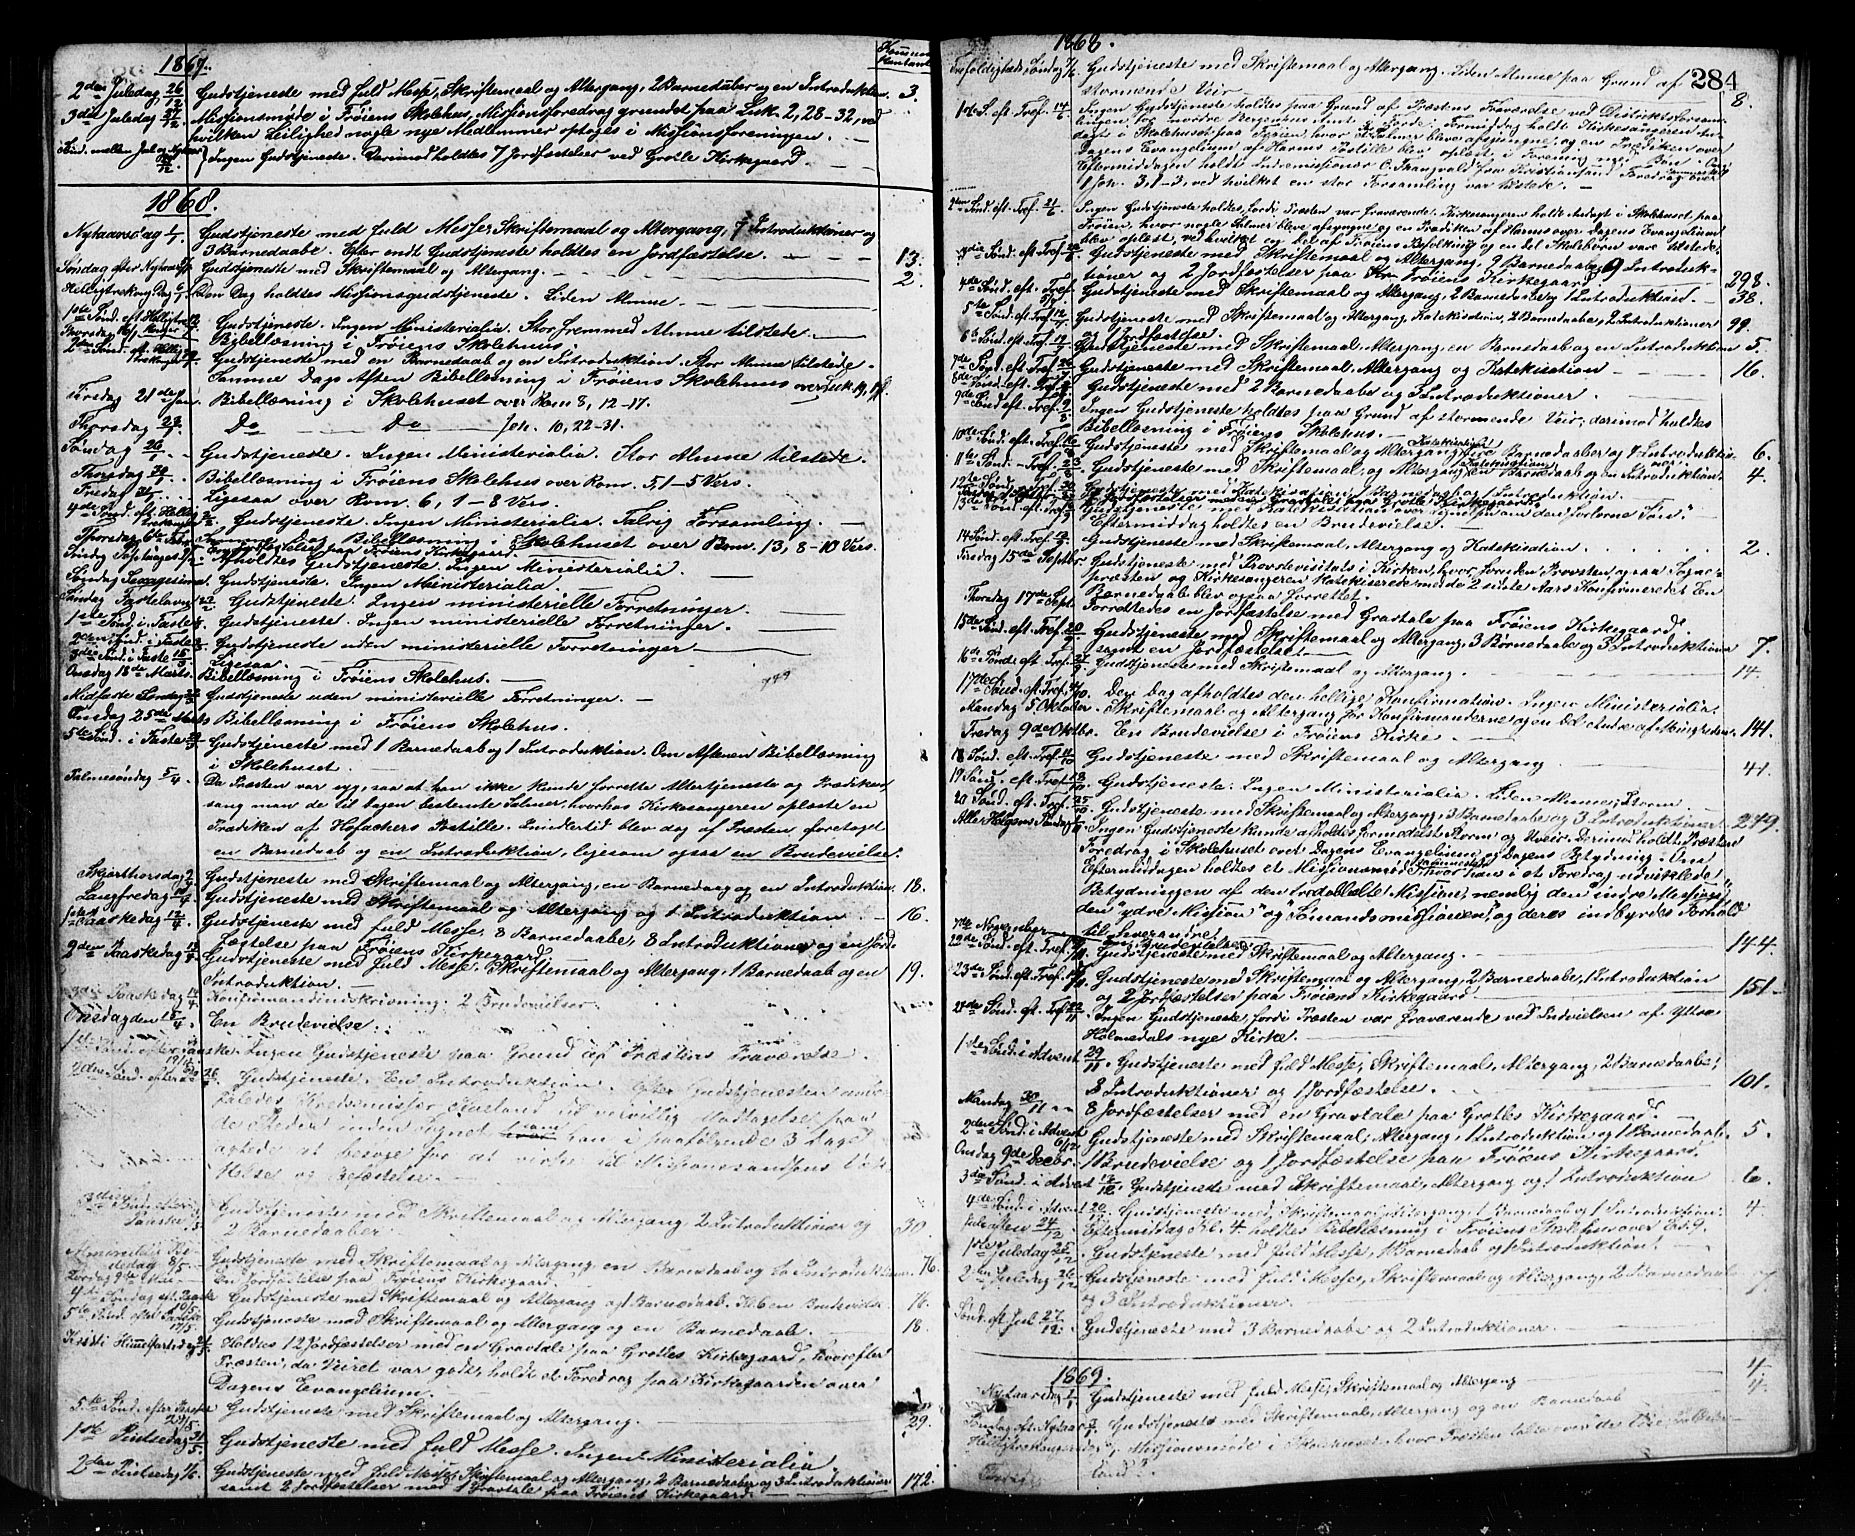 1867.
Kommuni-
kantant
2den Juledag 26/12 Gudstjeneste med fuld Messe, Skriftemaal og Altergang, 2 Barnedåber og en Introduktion. 3.
3die Juledag 27/12 Missionsmøde i Frøiens Skolehus, Missionsforedrag grundet paa Luk. 2, 28-32, ved
hvilken Leilighed nogle nye Medlemmer optoges i Missionsforeningen. —
Sønd. mellem Jul og Nytaar Ingen Gudstjeneste. Derimod holdtes 7 Jordfæstelser ved Grotle Kirkegaard. —
1868.
Nytaarsdag 1/1 Gudstjeneste med fuld Messe, Skriftemaal og Altergang, 7 Introduktioner og
3 Barnedaabe. Efter endt Gudstjeneste holdtes en Jordfæstelse. — 13.
Søndag efter Nytaar Gudstjeneste med Skriftemaal og Altergang. — 2
Helligtrekong. Dag 6/1 Den Dag holdtes Missionsgudstjeneste. Liden Almue. —
1ste Sønd. eft. Helligtre Gudstjeneste. Ingen Ministerialia. Stor fremmed Almue tilstede. —
Thorsdag Bibellæsning i Frøiens Skolehus. —
2den Sønd. eft. Gudstjeneste med en Barnedaab og en Introduktion. Stor Almue tilstede.
Samme Dags Aften Bibellæsning i Frøiens Skolehus over Luk. 19,
Tirsdag 21de Jan. Bibellæsning i Skolehuset over Rom 8, 12-17.
Thorsdag 23/1 Do — Do — Joh. 10, 22-31.
Søndag 26/1 Gudstjeneste. Ingen Ministerialia. Stor Almue tilstede.
Thorsdag 30/1 Bibellæsning i Frøiens Skolehus over Rom. 5, 1-5 Vers.
Fredag 31/1 Ligesaa over Rom. 6, 1-8 Vers.
4de Sønd. eft. Hellig Gudstjeneste. Ingen Ministerialia. Talrig Forsamling. —
Thorsdag 6te Febr. Bibellæsning i Skolehuset over Rom. 13, 8-10 Vers.
Søndag Septuages. Afholdtes Gudstjeneste. Ingen Ministerialia. —
Søndag Sexagesima Gudstjeneste. Ingen Ministerialia. —
Søndag Fastelavn Gudstjeneste. Ingen ministerielle Forretninger. —
1ste Sønd. i Faste Gudstjeneste. Ingen ministerielle Forretninger. —
2den Sønd. i Faste Gudstjeneste uden ministerielle Forretninger —
3die Sønd. i Faste 15/3 Ligesaa. —
Onsdag 18de Marts. Bibellæsning i Frøiens Skolehus. —
Midfaste Søndag 22/3 Gudstjeneste uden ministerielle Forretninger. —
Onsdag 25de Marts Bibellæsning i Frøiens Skolehus.
5te Sønd. i Faste 29/3 Gudstjeneste med 1 Barnedaab og 1 Introduktion. Om Aftenen Bibellæsning
i Skolehuset. —
Palmesøndag 5/4 Da Præsten var syg, saa at han ikke kunde forrette Altertjeneste og Prædiken,
sang man de til Dagen bestemte Salmer, hvorhos Kirkesangeren oplæste en
Prædiken af Hofackers Postille. Imidlertid blev dog af Præsten foretaget
en Barnedaab og en Introduktion, ligesom ogsaa en Brudevielse.
Skjærthorsdag Gudstjeneste med Skriftemaal og Altergang, en Barnedaab og en Introduktion. 18.
Langfredag 10/4 Gudstjeneste med Skriftemaal og Altergang og 1 Introduktion — 16.
1ste Paaskedag 12/4 Gudstjeneste med fuld Messe, 8 Barnedaabe, 8 Introduktioner og en Jord-
fæstelse paa Frøiens Kirkegaard. —
2den Paaskedag 13/4 Gudstjeneste med fuld Messe, Skriftemaal og Altergang, 1 Barnedaab og en 19.
Introduktion. —
3die Paaskedag 14/4 Konfirmandindskrivning. 2 Brudevielser.
Onsdag den 15/4. En Brudevielse.
1ste Sønd. efter Paaske 19/4 Ingen Gudstjeneste paa Grund af Præstens Fraværelse.
2den Sønd. efter 26 Gudstjeneste. En Introduktion. Efter Gudstjenesten
Kredsmissær til velvillig Modtagelse paa
de Steder inden Sognet han i paafølgende 3 Dage
agtede at besøge for at virke til Missionssandsens
kelse og Befæstelse. —
Gudstjeneste med Skriftemaal og Altergang 2 Introduktioner og 30.
2 Barnedaaber.
8/5 Gudstjeneste med Skriftemaal og Altergang en Barnedaab og to Introduktioner. 76.
Lørdag 9de Mai En Jordfæstelse paa Frøiens Kirkegaard.
4de Søndag eft. Paaske 10/5 Gudstjeneste med Skriftemaal og Altergang og 1 Barnedaab. en Brudevielse 76.
5te Sønd. efter Paaske 17/5 Gudstjeneste med Skriftemaal og Altergang og en Barnedaab. — 18.
Kristi Himmelfartsdag Holdtes 12 Jordfæstelser med en Gravtale paa Grotles Kirkegaard, hvorefter
Præsten, da Veiret var godt, holdt et Foredrag paa Kirkegaarden over
Dagens Evangelium. —
Sønd. efter Paaske 24/5 Gudstjeneste med Skriftemaal og Altergang. — 29.
1ste Pintsedag 31/5 Gudstjeneste med fuld Messe. Ingen Ministerialia —
2den Pintsedag 1/6. Gudstjeneste med fuld Messe, Skriftemaal og Altergang, 2 Barnedaabe og 3 Introduktioner 172.
samt 2 Jordfæstelser med 1 Gravtale paa Frøiens Kirkegaard.
1868.
284
Trefoldigheds Søndag 7/6 Gudstjeneste med Skriftemaal og Altergang. Liden Almue paa Grund af 8.
stormende Veir. —
1ste S. eft. Tref. 14/6 Ingen Gudstjeneste holdtes paa Grund af Præstens Fraværelse ved Distriktsforsam-
lingen for nordre Bergenhus Amt i Førde; Formiddag holdt Kirkesangeren An-
dagt i Skolehuset paa Frøien, hvor Salmer bleve afsjungne, og en Prædiken over
Dagens Evangelium af Harms Postille blev oplæst i Forening med Bøn. Om
Eftermiddagen holdt Indremissionær O. Thangvald fra Kristiansand Foredrag over
1 Joh. 3, 1-3, ved hvilket en stor Forsamling var tilstede. —
2den Sønd. eft. Tref. 21/6 Ingen Gudstjeneste holdtes, fordi Præsten var fraværende. Kirkesangeren holdt Andagt i Skolehuset paa
Frøien, hvor nogle Salmer bleve afsjungne og en Prædiken af Harms over Dagens Evangelium
blev oplæst, ved hvilket en Del af Frøiens Befolkning og en Del Skolebørn vare tilstede.
3die Sønd. eft. Tref. 28 Gudstjeneste med Skriftemaal og Altergang, 9 Barnedaabe, 9 Introduk-
tioner og 2 Jordfæstelser paa Frøiens Kirkegaard — 298.
4de Sønd. eft. Tref. 5/7 Gudstjeneste med Skriftemaal og Altergang, 2 Barnedaabe og 1 Introduktion. — 38.
5te S. eft. Tref. 12/7 Gudstjeneste med Skriftemaal og Altergang, Katekisation, 2 Barnedaabe, 2 Introduktioner 99.
og 1 Jordfæstelse.
6te Sønd. eft. Tref. 19 Gudstjeneste med Skriftemaal, Altergang, en Barnedaab og en Introduktion 5.
7de Sønd. eft. Tref. 26 Gudstjeneste med Skriftemaal, Altergang og Katekisation — 16.
8de Sønd. eft. Tref. Gudstjeneste med 2 Barnedaabe og 2 Introduktioner.
9de Sønd. eft. Tref. 9/8 Ingen Gudstjeneste holdtes paa Grund af stormende Veir, derimod holdtes
Bibellæsning i Frøiens Skolehus. —
10de Sønd. eft. Tref. 16 Gudstjeneste med Skriftemaal og Altergang, Barnedaaber og Introduktion 6.
11te Sønd. Tref. 23 Gudstjeneste med Skriftemaal og Altergang, Katekisation en Barnedaab og en Introduktion 4.
12te Sønd. eft. Tref. 30 Gudstjeneste med Katekisation, 1 Barnedaab og 1 Introduktion.
13de Sønd. eft. Tref. Gudstjeneste med Katekisation over den forlorne Søn."
Eftermiddag holdtes en Brudevielse. —
14 Sønd. eft. Tref. Gudstjeneste med Skriftemaal, Altergang og Katekisation. 2.
Tirsdag 15de Septbr Gudstjeneste med Provstevisitats i Kirken, hvor foruden Provsten ogsaa Sogne-
præsten og Kirkesangeren katekiserede med de 2 sidste Aars Konfirmerede. En
Barnedaab blev ogsaa forrettet.
Thorsdag 17de Sept. Forrettedes en Jordfæstelse med Gravtale paa Frøiens Kirkegaard.
15de Sønd. eft. Tref. 20/9 Gudstjeneste med Skriftemaal og Altergang, 3 Barnedaabe og 3 Introduktioner 7.
samt en Jordfæstelse. —
16de Sønd. eft. Tref. 27/9 Gudstjeneste med Skriftemaal og Altergang. — 14.
17de Sønd. eft. Tref. 4/10. Den Dag afholdtes den hellige Konfirmation. Ingen Ministerialia.
Mandag 5 Oktober. Skriftemaal og Altergang for Konfirmanderne og en Del Andre af Menigheden. 141.
Fredag 9de Oktbr. En Brudevielse i Frøiens Kirke. —
18 Sønd. eft. Tref. 11/10 Gudstjeneste med Skriftemaal og Altergang — 41.
19 Sønd. eft. Tref. 18/10 Gudstjeneste. Ingen Ministerialia. Liden Almue, Storm.
20 Sønd. eft. Tref. 25/10 Gudstjeneste med Skriftemaal og Altergang, 3 Barnedaabe og 3 Introduktioner. 279.
Alle Helgens Søndag Ingen Gudstjeneste kunde afholdes formedelst Storm og Uveir. Derimod holdt Præsten
Foredrag i Skolehuset over Dagens Evangelium og Dagens Betydning. Om
Eftermiddagen holdtes et Missionsmøde sammesteds, hvor han i et Foredrag udviklede
Betydningen af den tredobbelte Mission, nemlig den indre Mission,
den "ydre Mission" og "Sømandsmissionen", og deres indbyrdes Forhold
til hverandre. —
7de November En Brudevielse.
22de Sønd. eft. Tref. Gudstjeneste med Skriftemaal og Altergang. — 144.
23de Sønd. eft. Tref. Gudstjeneste med Skriftemaal og Altergang, 2 Barnedaabe, 1 Introduktion 151.
og 2 Jordfæstelser paa Frøiens Kirkegaard.
24de Sønd. eft. Tref. 22/11 Ingen Gudstjeneste, fordi Præsten var fraværende ved Indvielsen af Ytre
Holmedals nye Kirke.
1ste Sønd. i Advent 29/11 Gudstjeneste med fuld Messe, Skriftemaal, Altergang, 2 Barnedaabe,
3 Introduktioner og 1 Jordfæstelse. — 101.
Mandag 30/11 8 Jordfæstelser med en Gravtale paa Grotles Kirkegaard.
2den Sønd. i Advent 6/12 Gudstjeneste med Skriftemaal, Altergang, 1 Introduktion og 1 Barnedaab. 5.
Onsdag 9de Decbr. 1 Brudevielse og 1 Jordfæstelse paa Frøiens Kirkegaard.
3die Sønd. i Advent 13/12. Gudstjeneste med Skriftemaal, Altergang og 1 Introduktion 6.
4de Sønd. i Advent 20 Gudstjeneste med Skriftemaal, Altergang, 1 Barnedaab og 1 Introduktion. 4.
Juleaften 24/12 Eftermiddag Kl. 4 holdtes Bibellæsning i Frøiens Skolehus over Es. 9.
1ste Juledag 25/12 Gudstjeneste med fuld Messe, 1 Barnedaab og 1 Introduktion. —
2den Juledag 26/12 Gudstjeneste med fuld Messe, Skriftemaal og Altergang, 2 Barnedaab
og 3 Introduktioner.
Sønd. eft. Jul 27/12. Gudstjeneste med 3 Barnedaabe og 2 Introduktioner. —
1869.
Nytaarsdag 1/1 Gudstjeneste med fuld Messe, Skriftemaal og Altergang 4
Søndag eft. Nytaar Gudstjeneste med Skriftemaal, Altergang og en Barnedaab 4
Helligtrekongersdag Missionsmøde i Skolehuset, hvor Præsten talte over